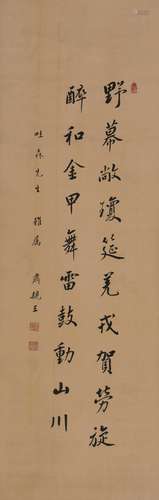 野幕敞瓊筵羌戎賀勞旋
醉和金甲舞雷鼓動山川
先生雅屬